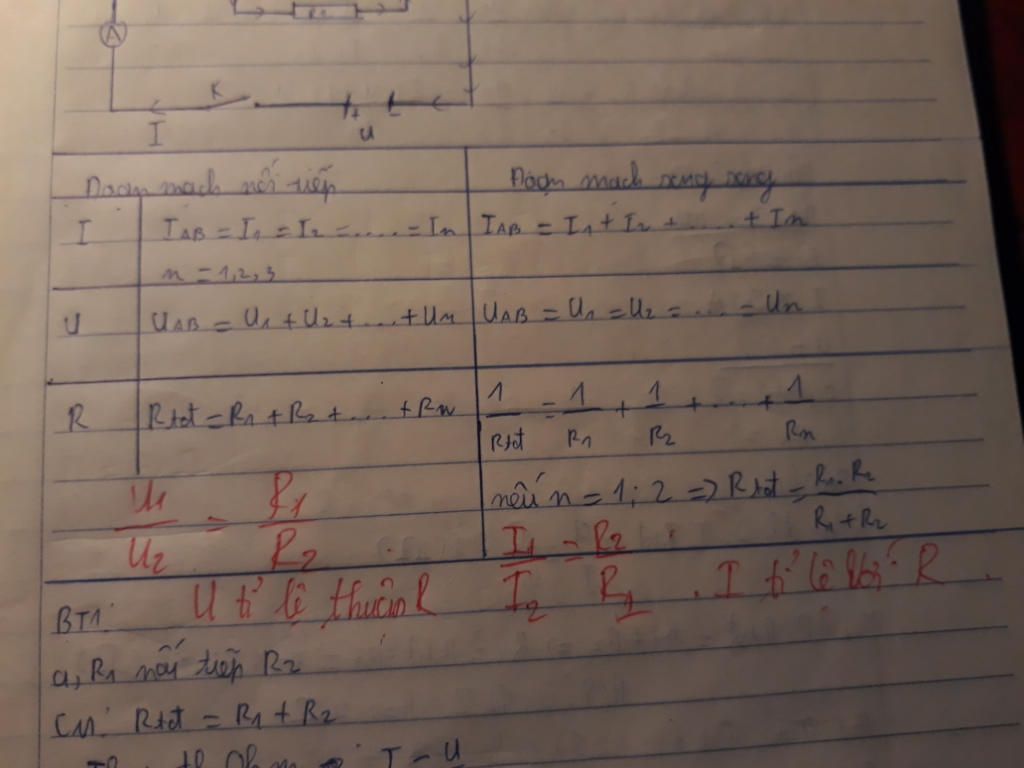 R2
A
K
I
+
-
U
Đoạn mạch nối tiếp
Đoạn mạch song song
I
IAB = I1 = I2 = ..... = In
IAB = I1 + I2 + ..... + In
n = 1,2,3
U
UAB = U1 + U2 + ... + Un
UAB = U1 = U2 = ... = Un
R
Rtđ = R1 + R2 + .... + Rn
1/Rtđ = 1/R1 + 1/R2 + .... + 1/Rn
nếu n = 1; 2 => Rtđ = R1.R2/R1+R2
U1/U2 = R1/R2
I1/I2 = R2/R1
U tỉ lệ thuận R
. I tỉ lệ với R
BT1:
a, R1 nối tiếp R2
CM: Rtđ = R1 + R2
I = U